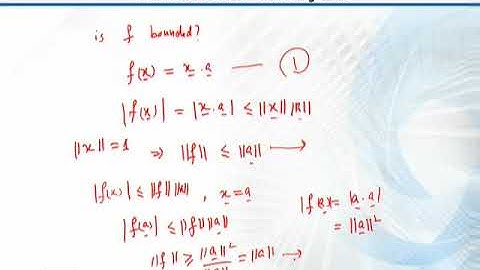 is f bounded?
f(x) = x · a — ①
|f(x)| = |x · a| ≤ ||x|| ||a||
||x|| = 1 ⇒ ||f|| ≤ ||a|| →
|f(x)| ≤ ||f|| ||x|| , x = a
|f(a)| ≤ ||f|| ||a||
|f(a)| = |a · a|
= ||a||²
||f|| ≥ ||a||² = ||a|| →